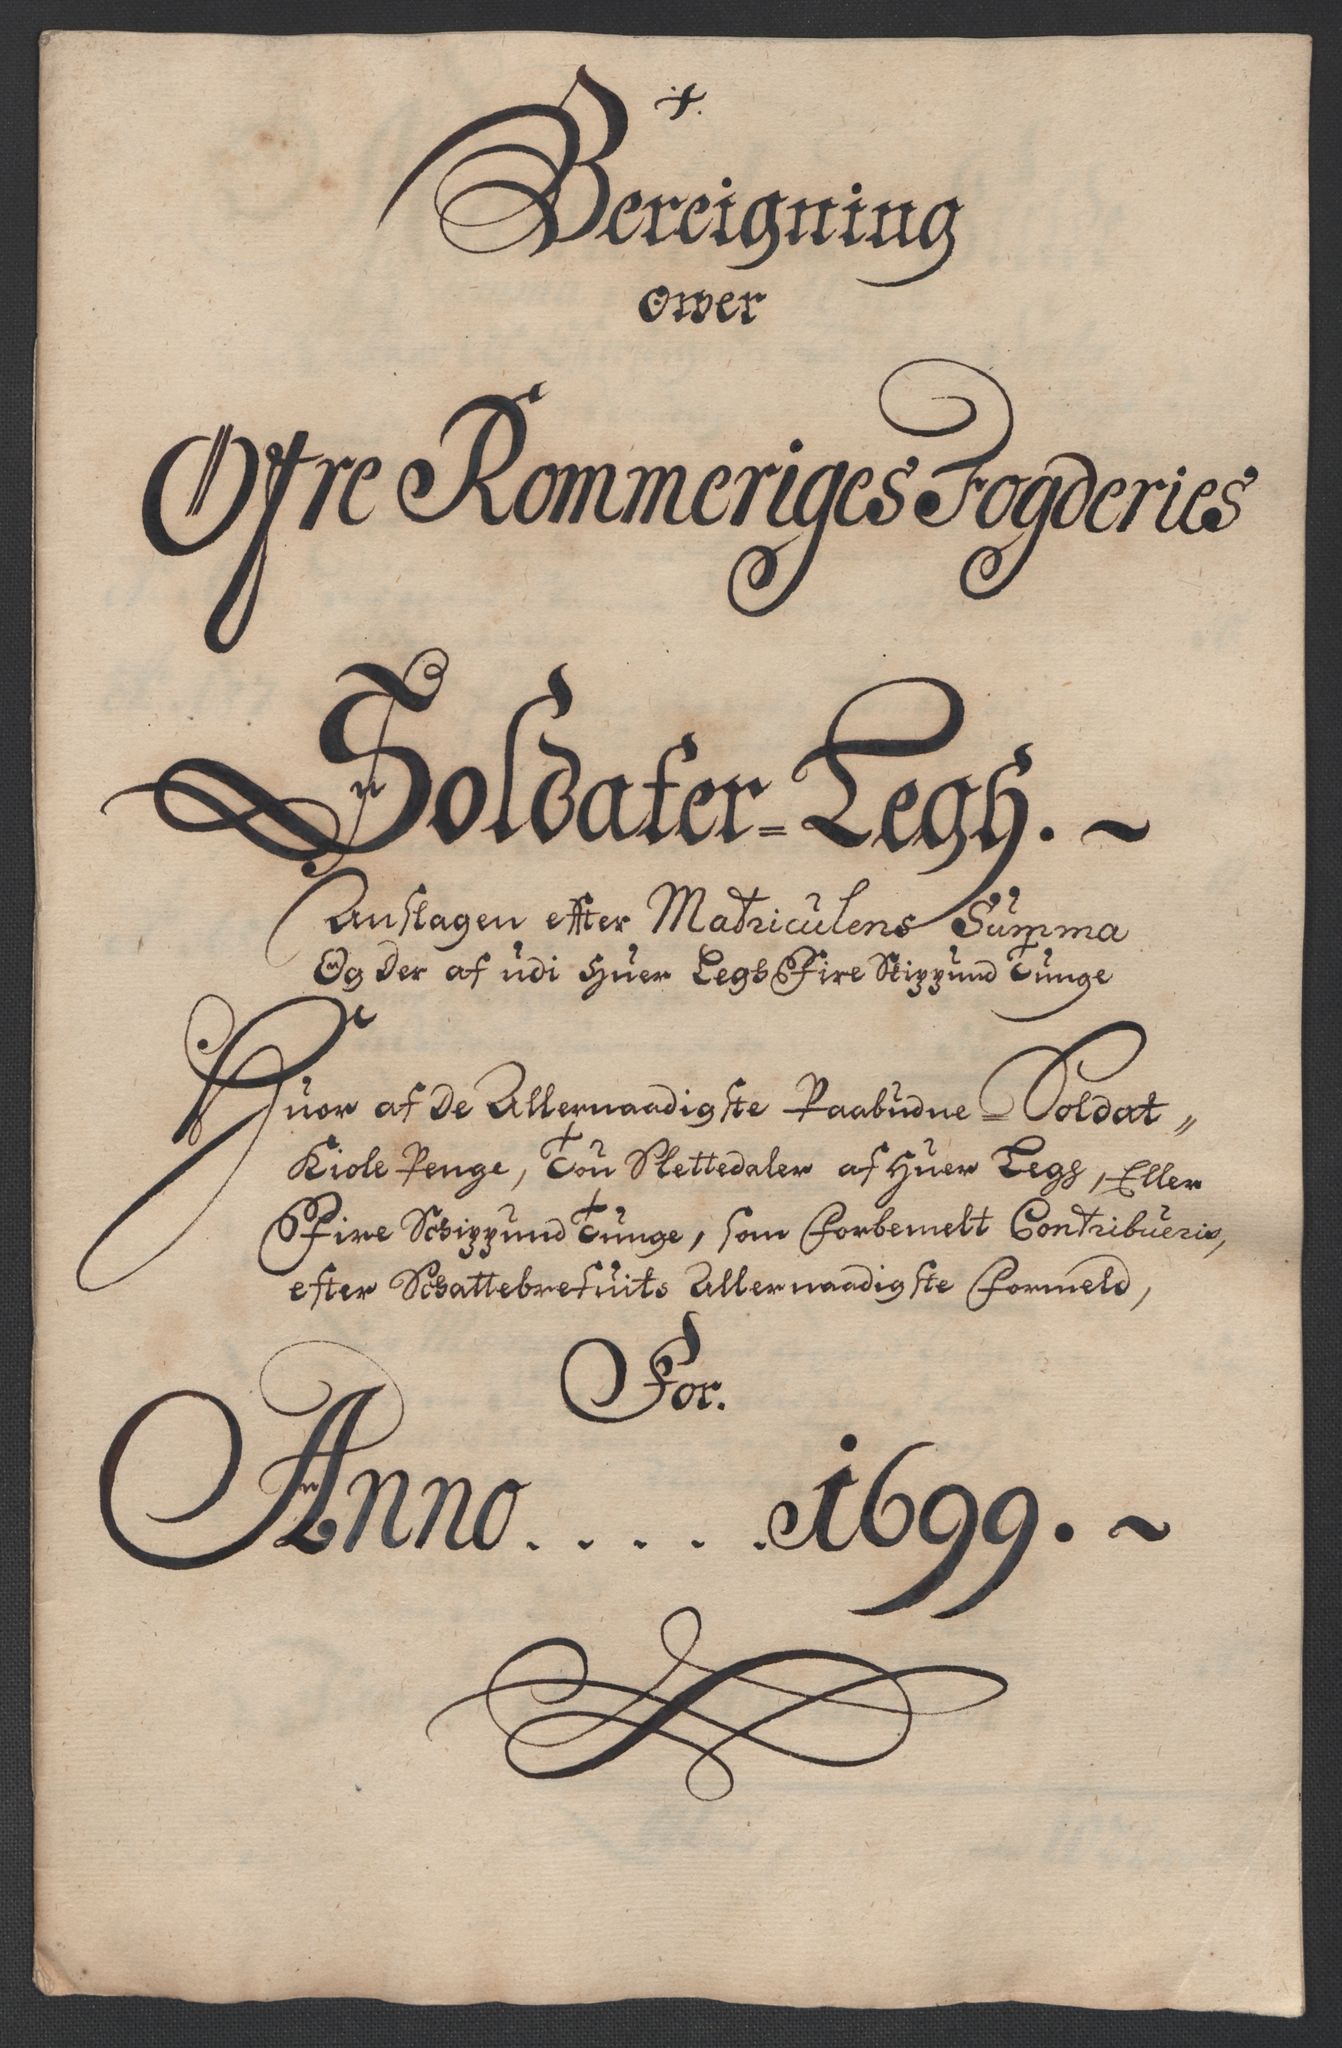 Bereigning
ower
Øfre Rommeriges Fogderies
Soldater=Legh. ~
Anslagen effter Matriculens Summa
Og der af udi huer Legh Fire Skippund Tunge
Huor af de Allernaadigste Paabudne=Soldat„
Kiole Penge, Tou Slettedaler af huer Legh, Eller
Fire Schippund Tunge, som forbemelt Contribueris,
efter Schattebrefuits Allernaadigste formeld,
For.
Anno . . . . . 1699. ~